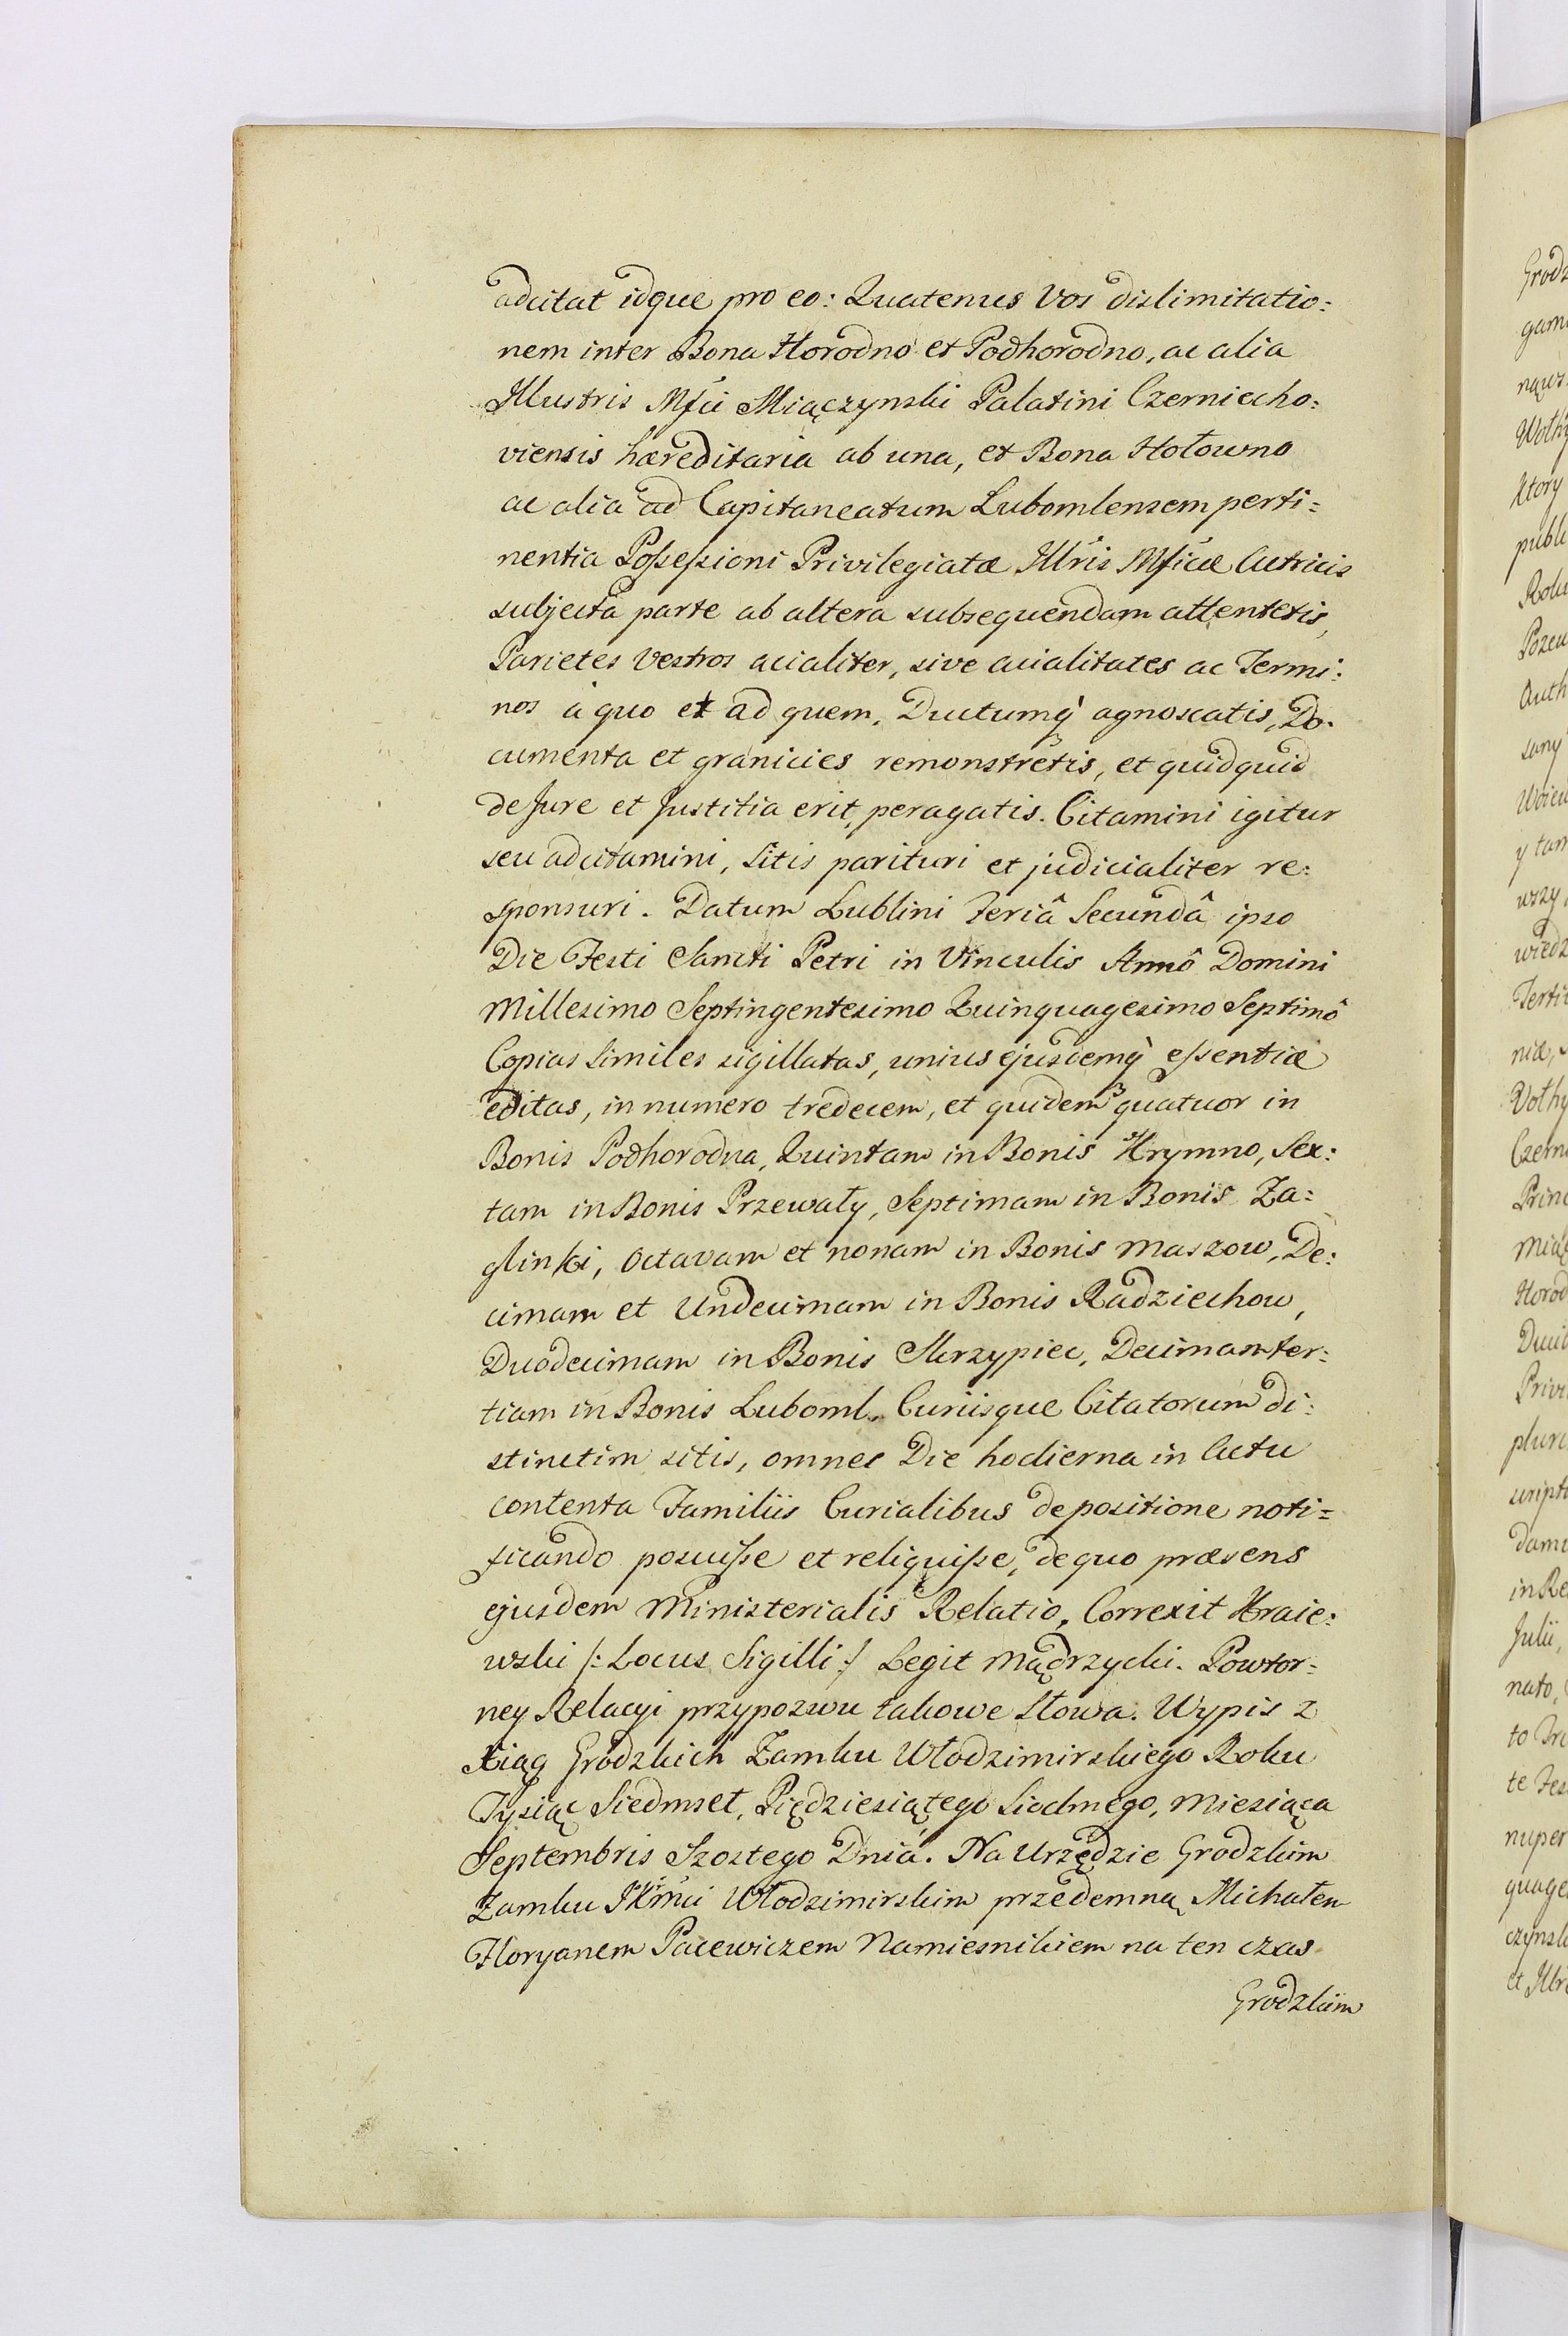 adcitat idque pro eo: Quatenus Vos dislimitatio:
nem inter Bona Horodno et Podhorodno, ac alia
Illustris Mfci Miączynski Palatini Czerniecho:
viensis hæreditaria ab una, et Bona Hołowno
ac alia ad Capitaneatum Lubomlensem perti=
nentia Possessioni Privilegiatæ Illris Mficæ Actricis
subjecta parte ab altera subsequendam attentetis,
Parietes Vestros acialiter, sive acialitates ac Termi:
nos à quo et ad quem, Ductumq̀ agnoscatis, Do:
cumenta et granicies remonstretis, et quidquid
de Jure et Justitia erit, peragatis. Citamini igitur
seu adcitamini, sitis parituri et judicialiter re:
sponsuri. Datum Lublini Feriâ Secundâ ipso
Die Festi Sancti Petri in Vinculis Annô Domini
Millesimo Septingentesimo Quinquagesimo Septimô
Copias similes sigillatas, unius ejusdemq̀ essentiæ
editas, in numero tredecem, et quidem quatuor in
Bonis Podhorodna, Quintam in Bonis Krymno, Sex:
tam in Bonis Przewały, Septimam in Bonis Za=
glinki, Octavam et nonam in Bonis Maszow, De:
cimam et Undecimam in Bonis Radziechow,
Duodecimam in Bonis Skrzypiec, Decimam ter:
tiam in Bonis Luboml, Curiisque Citatorum di:
stinctim sitis, omnes Die hodierna in Actu
contenta Familiis Curialibus depositione noti=
ficando posuisse et reliquisse, de quo præsens
ejusdem Ministerialis Relatio, Correxit Kraie:
wski /: Locus Sigilli :/ Legit Mądrzycki. Powtor=
ney Relacyi przypozwu takowe słowa. Wypis z
Xiąg Grodzkich Zamku Włodzimirskiego Roku
Tysiąc Siedmset, Piędziesiątego Siodmego, Miesiąca
Septembris Szostego Dnia. Na Urzędzie Grodzkim
Zamku JKmci Włodzimirskim przedemną Michałem
Floryanem Pacewiczem Namiesnikiem na ten czas
Grodzkim